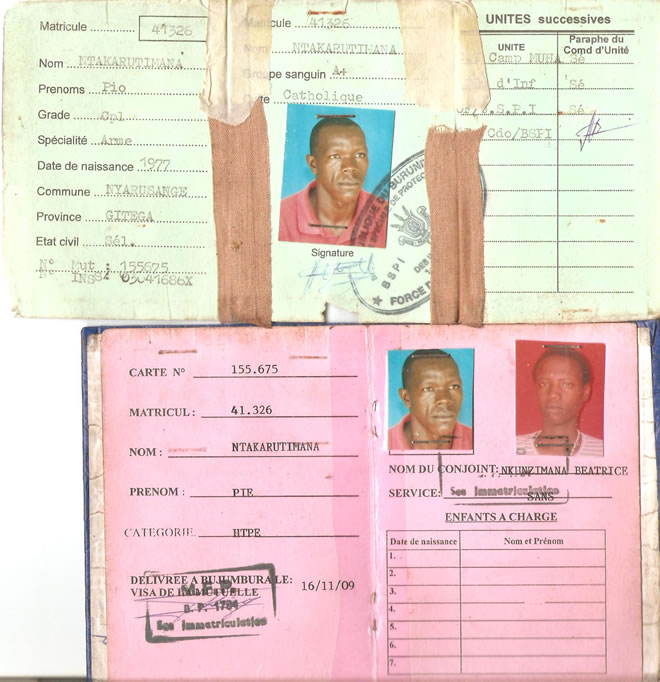 Matricule 41326
Nom NTAKARUTIMANA
Prenoms Pio
Grade Cpl
Spécialité Arme
Date de naissance 1977
Commune NYARUSANGE
Province GITEGA
Etat civil Sél.
N° Mut : 155675
N° INSS 03041686X
cule 41326
NTAKARUTIMANA
Groupe sanguin A+
Catholique
Signature
BSPI
FORCE D
UNITES successives
UNITE
Paraphe du
Comd d'Unité
Camp MUHA Sé
d'Inf Sé
S.P.I Sé
Cdo/BSPI
CARTE N° 155.675
MATRICUL : 41.326
NOM : NTAKARUTIMANA
PRENOM : PIE
CATEGORIE HTPE
DELIVREE A BUJUMBURA LE: 16/11/09
VISA DE LA MUTUELLE
M.F.P
B.P. 1784
Ses Immatriculation
NOM DU CONJOINT: NKUNZIMANA BEATRICE
SERVICE: SANS
Ses Immatriculation
ENFANTS A CHARGE
Date de naissance Nom et Prénom
1.
2.
3.
4.
5.
6.
7.